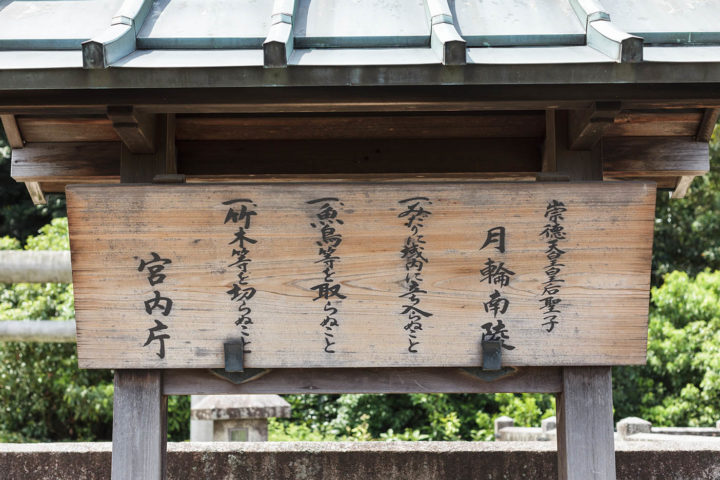 崇徳天皇皇后聖子
月輪南陵
一みだりに域内に立ち入らぬこと
一魚鳥等を取らぬこと
一竹木等を切らぬこと
宮内庁